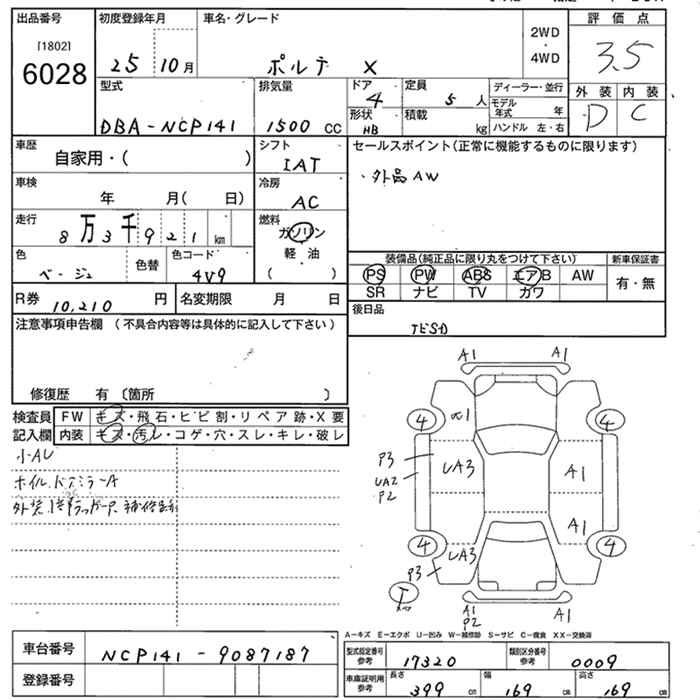 出品番号 初度登録年月 車名・グレード 2WD・4WD 評価点
[1802]
6028 25 10月 ポルテ X 3.5
外装 内装
D C
型式 排気量 ドア 定員 ディーラー・並行
4 5人 モデル年式 年
形状 積載
DBA-NCP141 1500 CC HB kg ハンドル 左・右
車歴 シフト セールスポイント(正常に機能するものに限ります)
自家用・( ) IAT
・外品AW
車検 冷房
年 月( 日) AC
走行 燃料
8万3千921km ガソリン
軽・油
( )
色 色替 色コード 装備品(純正品に限り丸をつけて下さい) 新車保証書
ベージュ 4V9 PS PW ABS エアB AW 有・無
SR ナビ TV ガワ
R券 名変期限 月 日 後日品
10,210円
注意事項申告欄 (不具合内容等は具体的に記入して下さい)
修復歴 有 〔箇所 〕
検査員 FW キズ・飛石・ヒビ割・リペア跡・X要
記入欄 内装 キズ・汚レ・コゲ・穴・スレ・キレ・破レ
小AU
ホイル、ドアミラーA
A1 A1
4 α1 4
P3 UA3 A1
UA2
P2
A1
4 UA3 4
P3
T
A1 A1
P2
A-キズ E-エクボ U-凹み W-補修跡 S-サビ C-腐食 XX-交換済
車台番号 NCP141-9087187
登録番号
型式指定番号 参考 17320 類別区分番号 参考 0009
車庫証明用 参考 長さ 399cm 幅 169cm 高さ 169cm